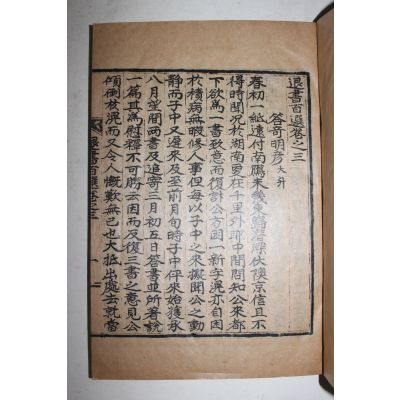 退書百選卷之三
答奇明彦大升
春初一紙遠付南鴈未幾東歸落深伏陝京信且不
得時聞況於湖南愛在千里外耶中間聞知公來都
下欲爲一書致意而復計公方困一新字滉亦自困
於積病無暇修人事但每以子中之來擬聞公之動
静而子中又遲來及至前月旬時子中伻來始獲承
八月望間兩書及追寄三月初五日答書並所著說
一篇其爲慰釋不可勝去因而及復三書之意見公
傾倒於滉而又令人慨歎無已也大抵出處去就當
退書百選卷之三